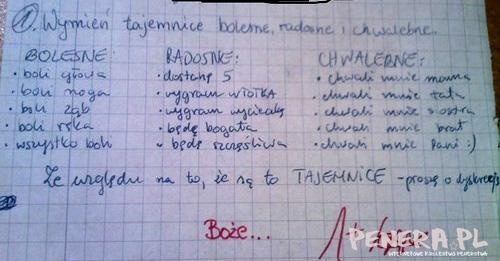 1. Wymień tajemnice bolesne, radosne i chwalebne.
BOLESNE: RADOSNE: CHWALEBNE:
• boli głowa • dostanę 5 • chwali mnie mama
• boli noga • wygram WIOTKA • chwali mnie tata
• boli ząb • wygram wycieczkę • chwali mnie siostra
• boli ręka • będę bogata • chwali mnie brat
• wszystko boli • będę szczęśliwa • chwali mnie Pani :)
Ze względu na to, że są to TAJEMNICE - proszę o dyskrecję
Boże... 1+
PENERA.PL